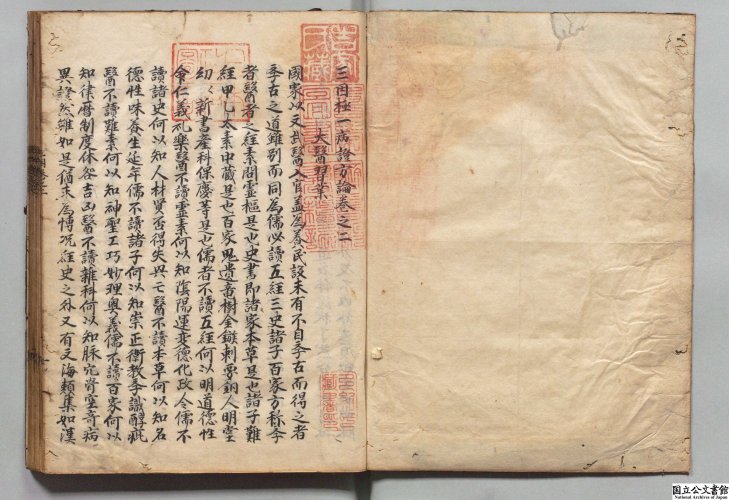 三因極一病證方論巻之二
大醫習業
國家以文武醫入官盖為養民設未有不自學古而得之者
學古之道雖別而同為儒必讀五經三史諸子百家方稱學
者醫者之經素問靈樞是也史書即諸家本草是也諸子難
經甲乙太素中藏是也百家鬼遺龍樹金鏃刺要銅人明堂
幼〻新書產科保慶等是也儒者不讀五經何以明道德性
命仁義礼樂醫不讀靈素何以知陰陽運变德化政令儒不
讀諸史何以知人材賢否得失興亡醫不讀本草何以知名
德性味養生延年儒不讀諸子何以知崇正衛教學識醇疵
醫不讀難素何以知神聖工巧妙理奥義儒不讀百家何以
知律曆制度休咎吉凶醫不讀雜科何以知脉穴骨空奇病
異證然雖如是猶未為愽况經史之外又有文海類集如漢
国立公文書館
National Archives of Japan